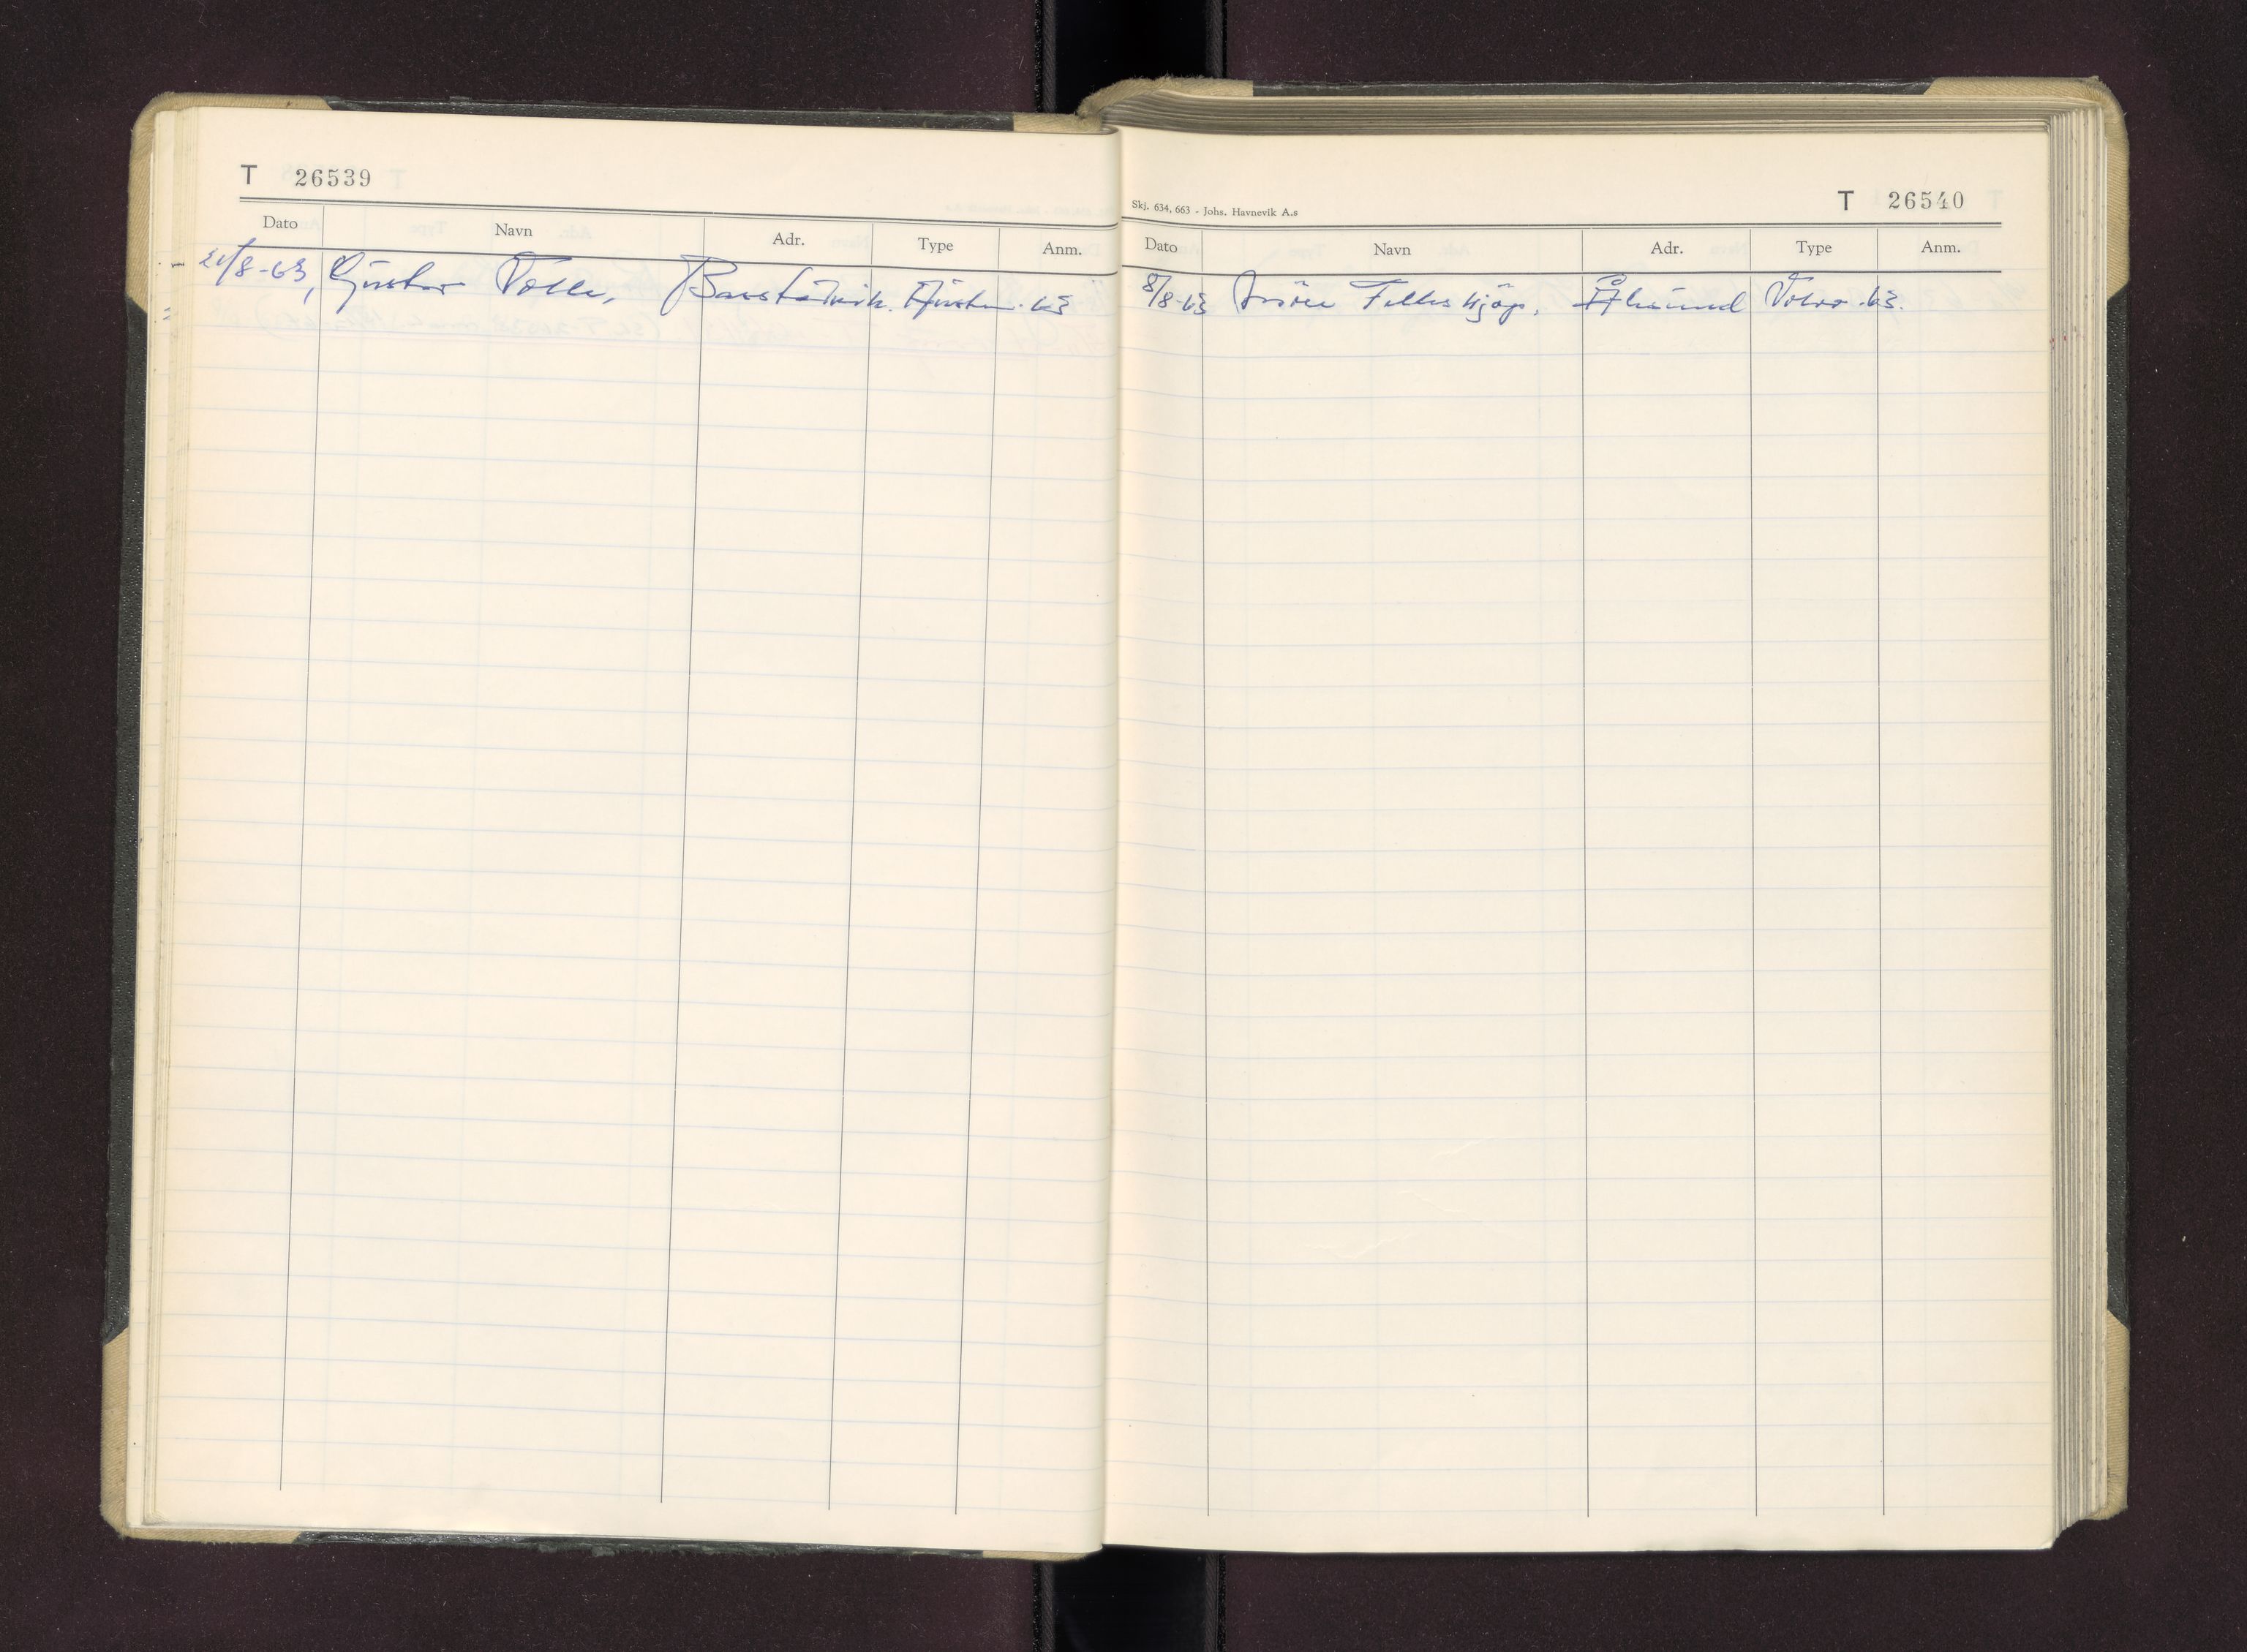 T 26539
Dato Navn Adr. Type Anm.
21/8-63, Gustav Tolle, Baustadvik. Austin. 63
Skj. 634, 663 - Johs. Havnevik A.s
T 26540
Dato Navn Adr. Type Anm.
8/8-63 Möre Felleskjöp. Ålesund Volvo. 63.